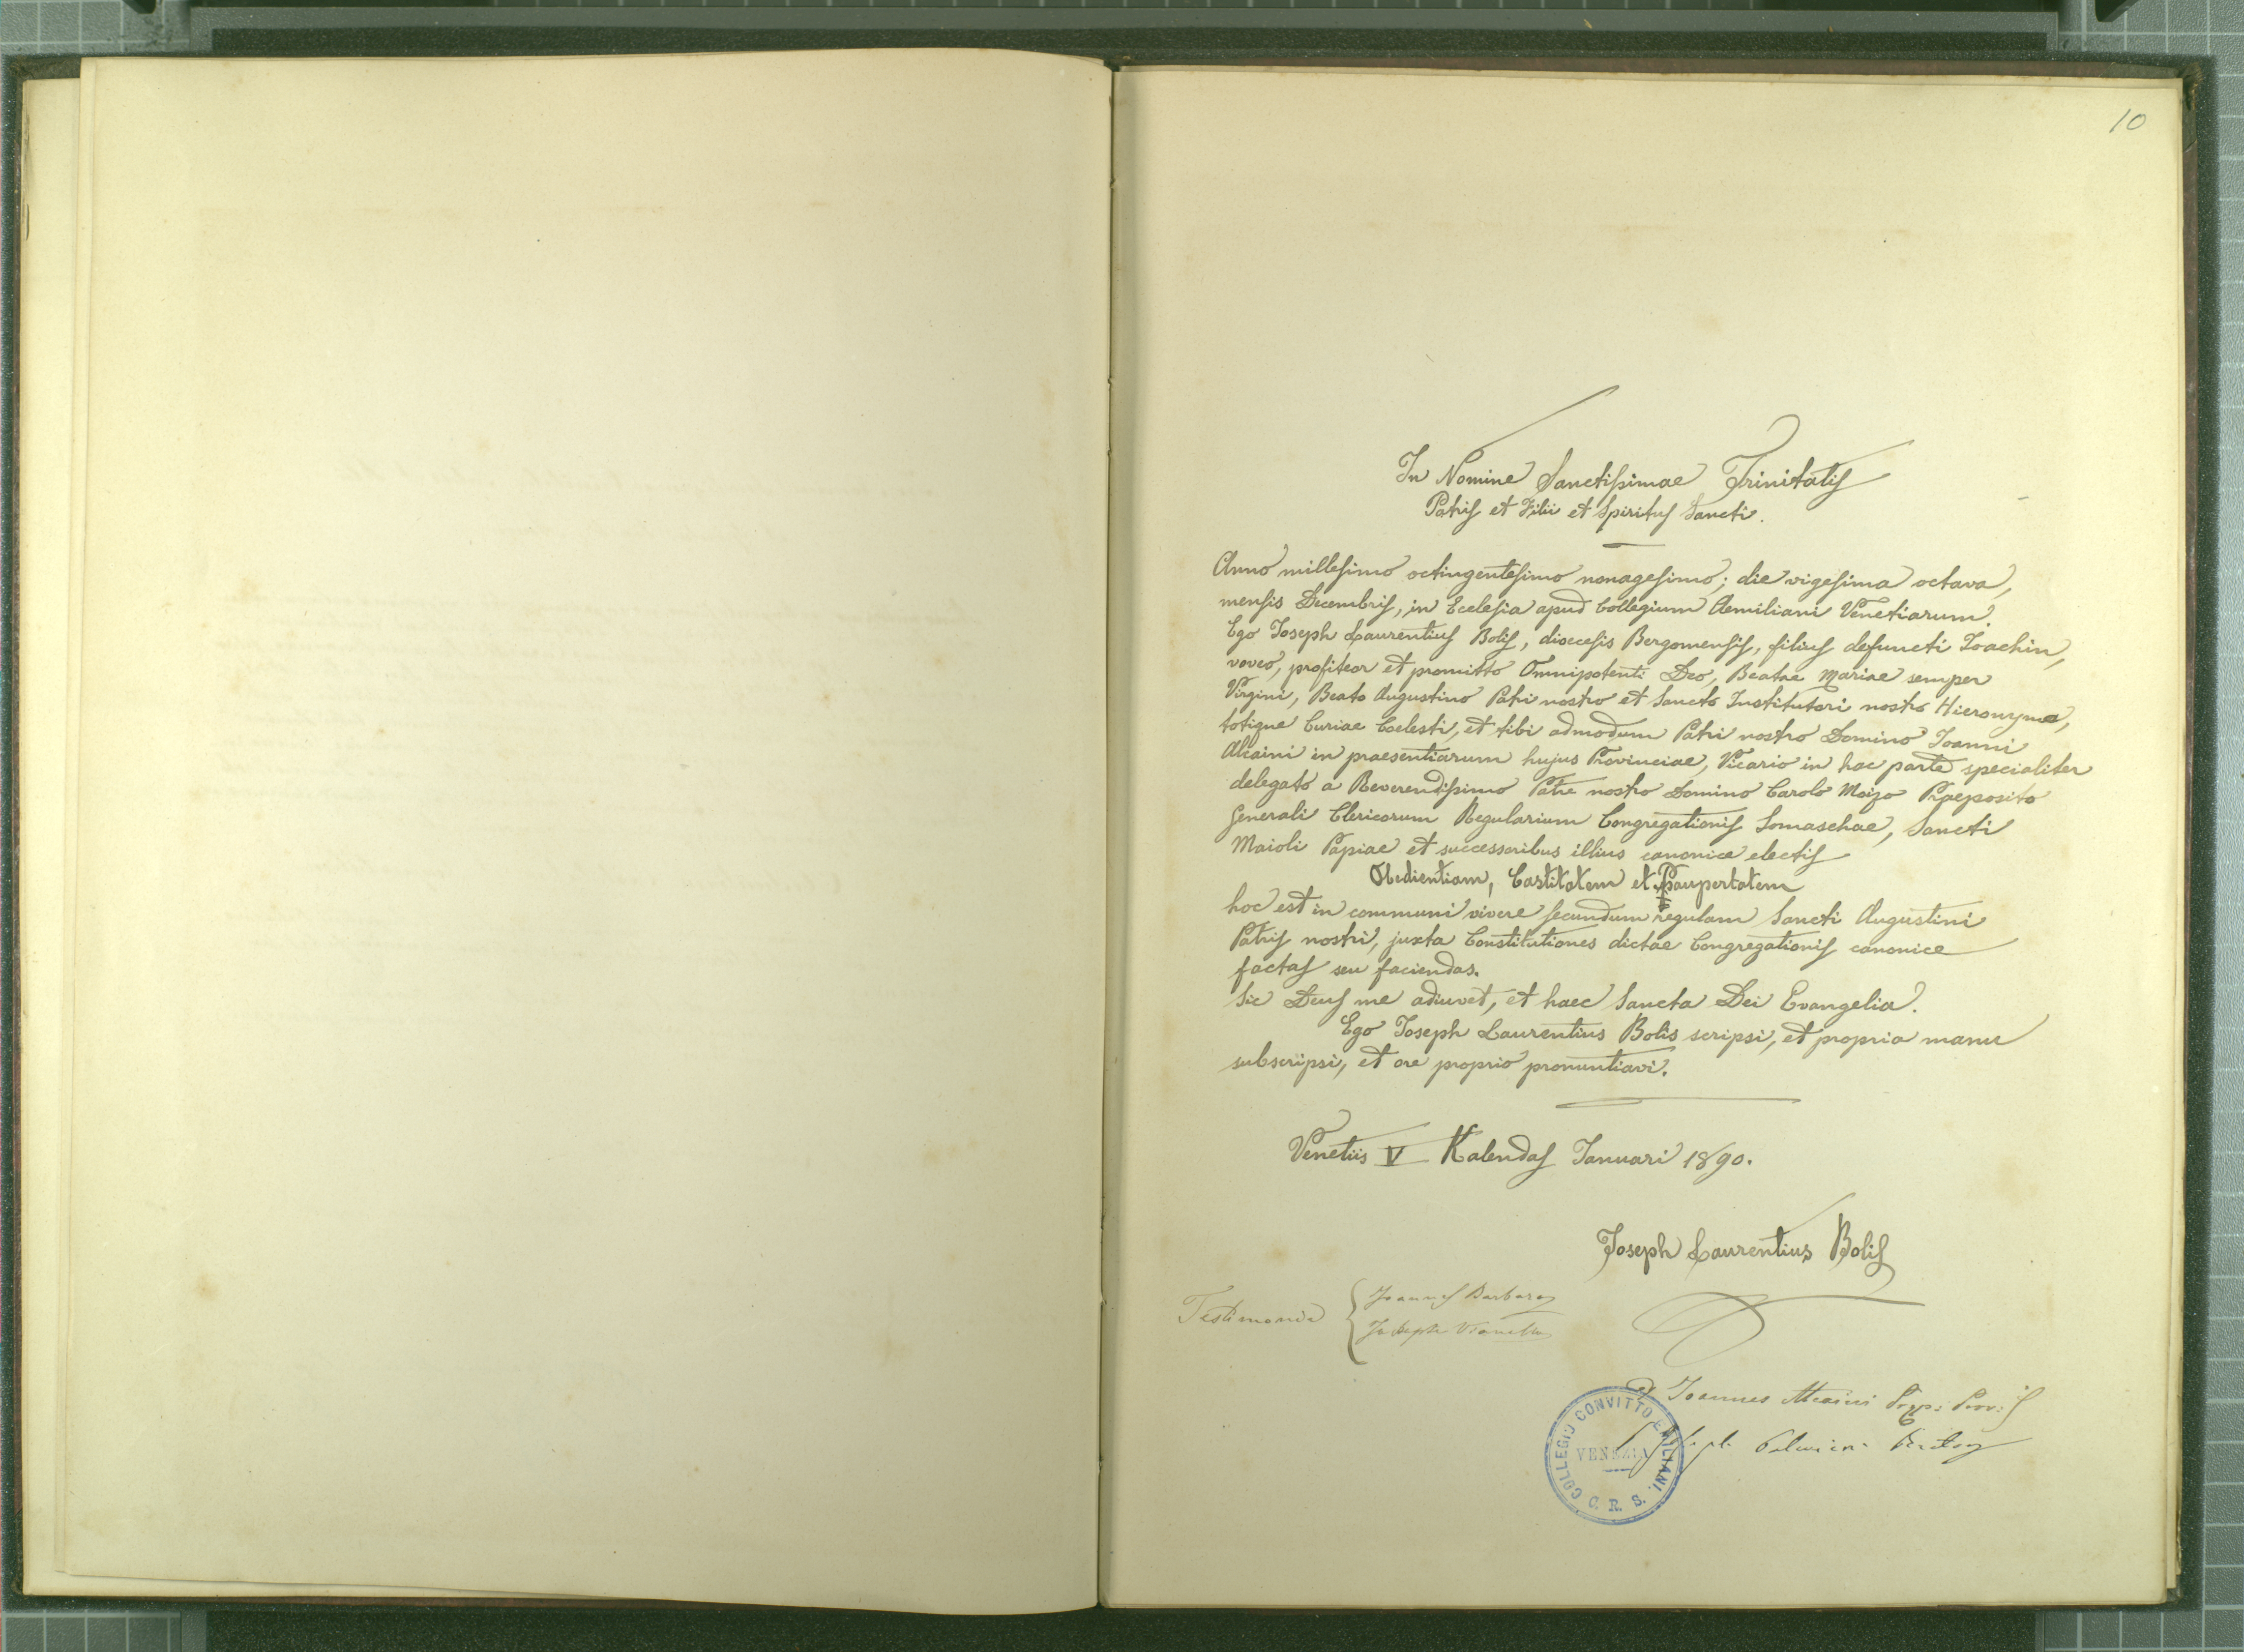 10
In Nomine Sanctissimae Trinitatis
Patris et Filii et Spiritus Sancti.
Anno millesimo octingentesimo nonagesimo; die vigesima octava,
mensis Decembris, in Ecclesia apud Collegium Aemiliani Venetiarum.
Ego Joseph Laurentius Bolis, dioecesis Bergomensis, filius defuncti Joachin,
voveo, profiteor et promitto Omnipotenti Deo, Beatae Mariae semper
Virgini, Beato Augustino Patri nostro et Sancto Institutori nostro Hieronymo,
totique Curiae Coelesti, et tibi admodum Patri nostro Domino Joanni
Alcaini in praesentiarum hujus Provinciae, Vicario in hac parte specialiter
delegato a Reverendissimo Patre nostro Domino Carolo Moizo Praeposito
Generali Clericorum Regularium Congregationis Somaschae, Sancti
Maioli Papiae et successoribus illius canonice electis
Obedientiam, Castitatem et Paupertatem
hoc est in communi vivere secundum regulam Sancti Augustini
Patris nostri, juxta Constitutiones dictae Congregationis canonice
factas seu faciendas.
Sic Deus me adiuvet, et haec Sancta Dei Evangelia.
Ego Joseph Laurentius Bolis scripsi, et propria manu
subscripsi, et ore proprio pronuntiavi.
Venetiis V Kalendas Januari 1890.
Joseph Laurentius Bolis
Testimonia
Joannes Barbaro
Joseph Vianello
D Joannes Alcaini Prep: Prov:
COLLEGIO CONVITTO EMILIANI
VENEZIA
C. R. S.